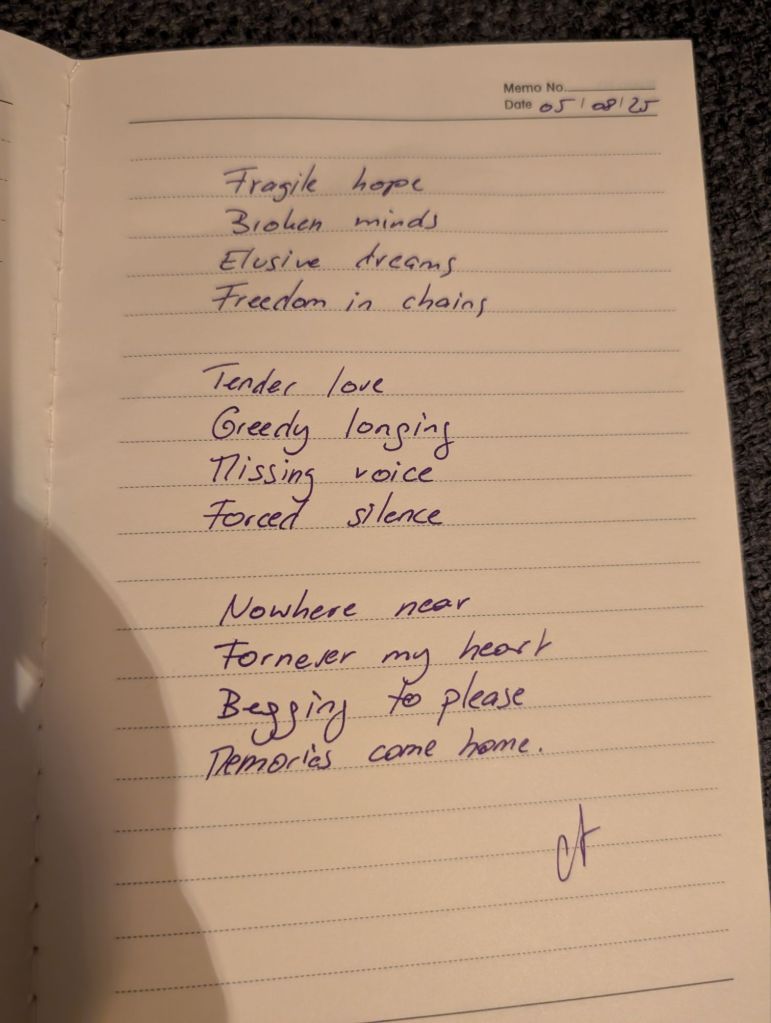 Memo No.
Date 05/08/25
Fragile hope
Broken minds
Elusive dreams
Freedom in chains
Tender love
Greedy longing
Missing voice
Forced silence
Nowhere near
Fornever my heart
Begging to please
Memories come home.